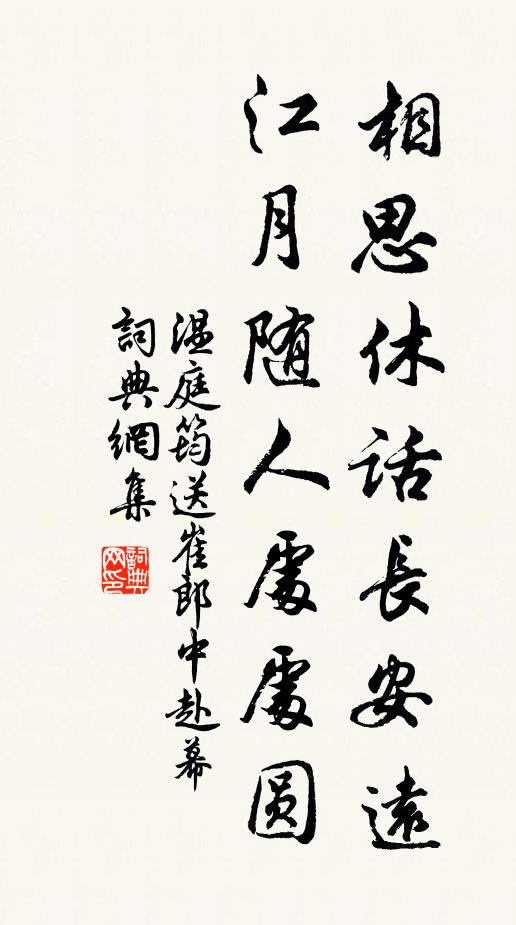 相思休话長安遠
江月随人處處圆
温庭筠送崔郎中赴幕
詞典網集
詞典网印